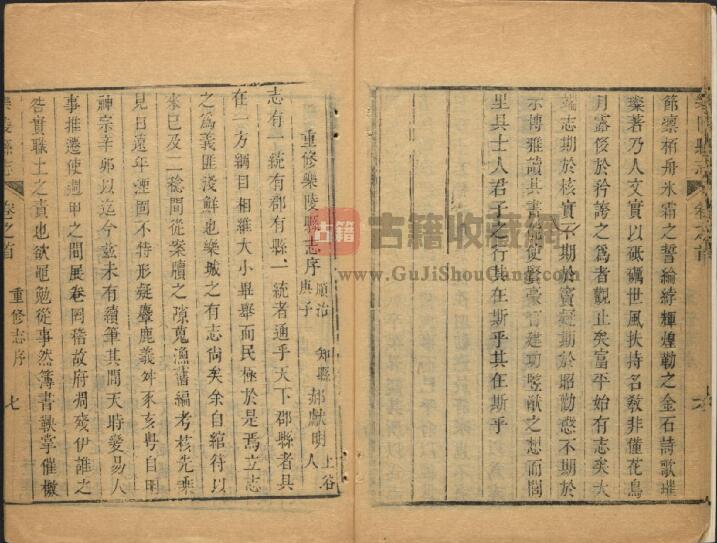 節凜栢舟氷霜之誓綸綍輝煌勒之金石詩歌璀
璨著乃人文實以砥礪世風扶持名敎非僅花鳥
月露後於矜誇之爲者觀止矣富平始有志矣大
端志期於核實不期於寳疑期於昭勸懲不期於
示博雅讀其書能使賢豪
建功竪猷之想而閭
里具士人君子之行其在斯乎其在斯乎
重修樂陵縣志序
順治庚子
知縣郝獻明
上谷人
志有一統有郡有縣一統者通乎天下郡縣者具
在一方綱目相維大小畢舉而民極於是焉立志
之爲義匪淺鮮也樂城之有志尚矣余自綰符以
來已及二稔間從案牘之隙蒐漁舊編考核先乘
見日遠年湮固不特形疑麞鹿義舛豕亥粤自明
神宗辛卯以迄今玆未有續筆其間天時變易人
事推遷使週甲之間展卷罔稽故府凋殘伊誰之
咎實職土之責也欲黽勉從事然簿書鞅掌催檄
樂陵縣志
卷之首
重修志序
七
古籍
古籍收藏网
www.GuJiShouCang.com